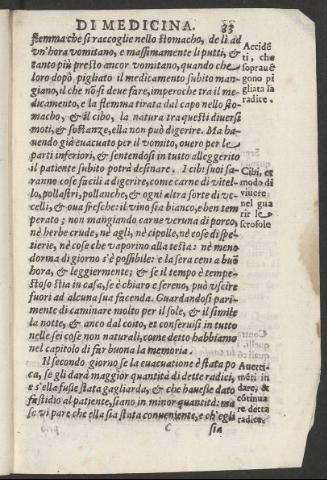 DI MEDICINA. 33
flemma che si raccoglie nello stomacho, de lì ad
vn'hora vomitano, e massimamente li putti, &
tanto più presto ancor vomitano, quando che
loro dopò pigliato il medicamento subito man-
giano, il che nō si deue fare, imperoche tra il me-
dicamento, e la flemma tirata dal capo nello sto-
macho, & il cibo, la natura tra questi diuersi
moti, & sostanze, ella non può digerire. Ma ha-
uendo già euacuato per il vomito, ouero per le
parti inferiori, & sentendosi in tutto alleggerito
il patiente subito potrà desinare. I cibi suoi sa-
ranno cose facili a digerire, come carne di vitel-
lo, pollastri, pollanche, & ogni altra sorte di vc-
celli, & oua fresche: il vino sia bianco, e ben tem
perato; non mangiando carne veruna di porco,
nè herbe crude, nè agli, nè cipolle, nè cose di spe-
tierie, nè cose che vaporino alla testa: nè meno
dorma di giorno s'è possibile: e la sera ceni a buō
hora, & leggiermente; & se il tempo è tempe-
stoso stia in casa, se è chiaro e sereno, può vscire
fuori ad alcuna sua facenda. Guardandosi pari-
mente di caminare molto per il sole, & il simile
la notte, & anco dal coito, et conseruisi in tutto
nelle sei cose non naturali, come detto habbiamo
nel capitolo di far buona la memoria.
Il secondo giorno se la euacuatione è stata po
ca, se gli darà maggior quantità di dette radici,
e s'ella fusse stata gagliarda, & che hauesse dato
fastidio al patiente, siano in minor quantità: ma
se vi pare che ella sia stata conueniente, e ch'egli
C sia
Accidē
ti, che
soprauē
gono pi
gliata la
radice.
Cibi, et
modo di
viuere
nel gua
rir le
scrofole
Auerti-
mēti in
dare, &
cōtinua
re detta
radice.